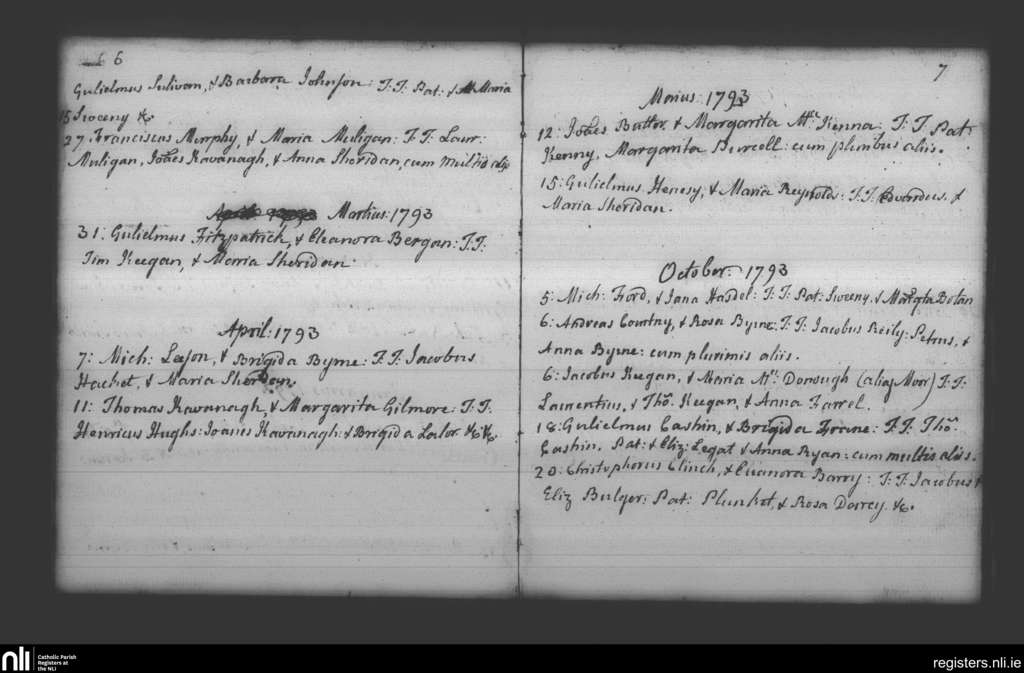 6
Gulielmus Sulivan, & Barbara Johnson: T.T. Pat: & Maria
15 Sweeny &c
27 Franciscus Murphy, & Maria Muligan: T.T. Laur:
Muligan, Johes Kavanagh, & Anna Sheridan, cum multis aliis
Martius: 1793
31: Gulielmus Fitzpatrick, & Eleanora Bergan: T.T.
Tim Keegan, & Maria Sheridan
April: 1793
7: Mich: Leeson, & Brigida Byrne: T.T. Jacobus
Hachet, & Maria Sheridan,
11: Thomas Kavanagh, & Margarita Gilmore: T.T.
Henricus Hughs: Joanes Kavanagh: & Brigida Lalor. &c &c
7
Maius: 1793
12: Johes Butler, & Margarita Mc. Kenna: T.T. Pat:
Kenny, Margarita Purcell: cum plunibus aliis.
15: Gulielmus Henesy, & Maria Reynolds: T.T. Edvardus, &
Maria Sheridan.
October: 1793
5: Mich: Ford, & Jana Hasdel: T.T. Pat: Sweeny. & Margta Bolan
6: Andreas Courtny, & Rosa Byrne: T.T. Jacobus Reily: Petrus, &
Anna Byrne: cum plurimis aliis.
6: Jacobus Keegan, & Maria Mc. Donough (alias Moor) T.T.
Laurentius, & Tho. Keegan, & Anna Farrel.
18: Gulielmus Cashin, & Brigida Frane: T.T. Thos
Cashin, Pat: & Eliz: Legat & Anna Ryan: cum multis aliis.
20: Christophorus Clinch, & Eleanora Barry: T.T. Jacobus &
Eliz Bulger: Pat: Plunket, & Rosa Darcy. &c.
nli
Catholic Parish
Registers at
the NLI
registers.nli.ie